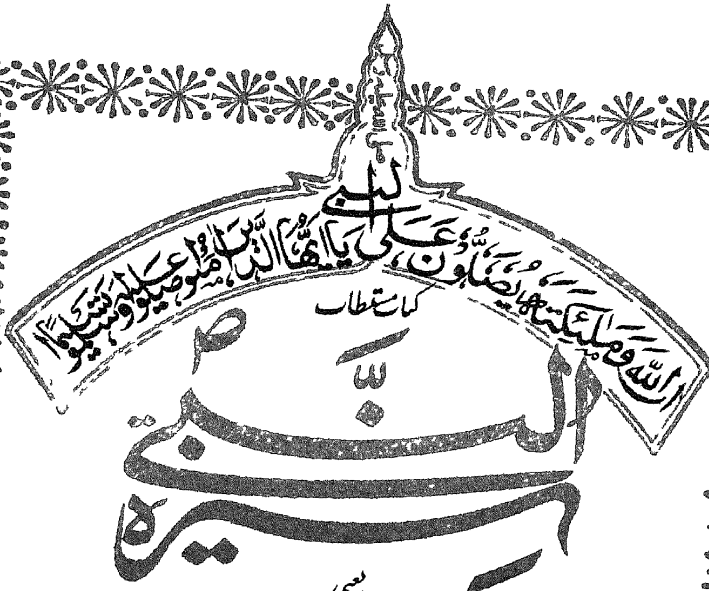 اِنَّ اللّٰهَ وَمَلٰئِكَتَهٗ يُصَلُّوْنَ عَلَى النَّبِيِّ يَا اَيُّهَا الَّذِيْنَ اٰمَنُوْا صَلُّوْا عَلَيْهِ وَسَلِّمُوْا تَسْلِيْمًا
کتاب مستطاب
سیرۃ النبیؐ
یعنی